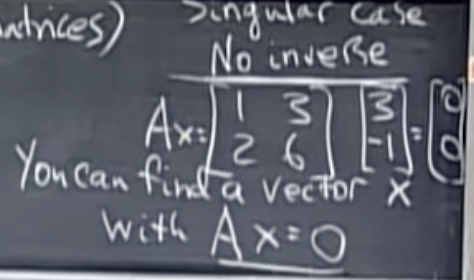 atrices) Singular case
No inverse
Ax=[1 3; 2 6] [3; -1]=[0; 0]
You can find a vector x
with Ax=0